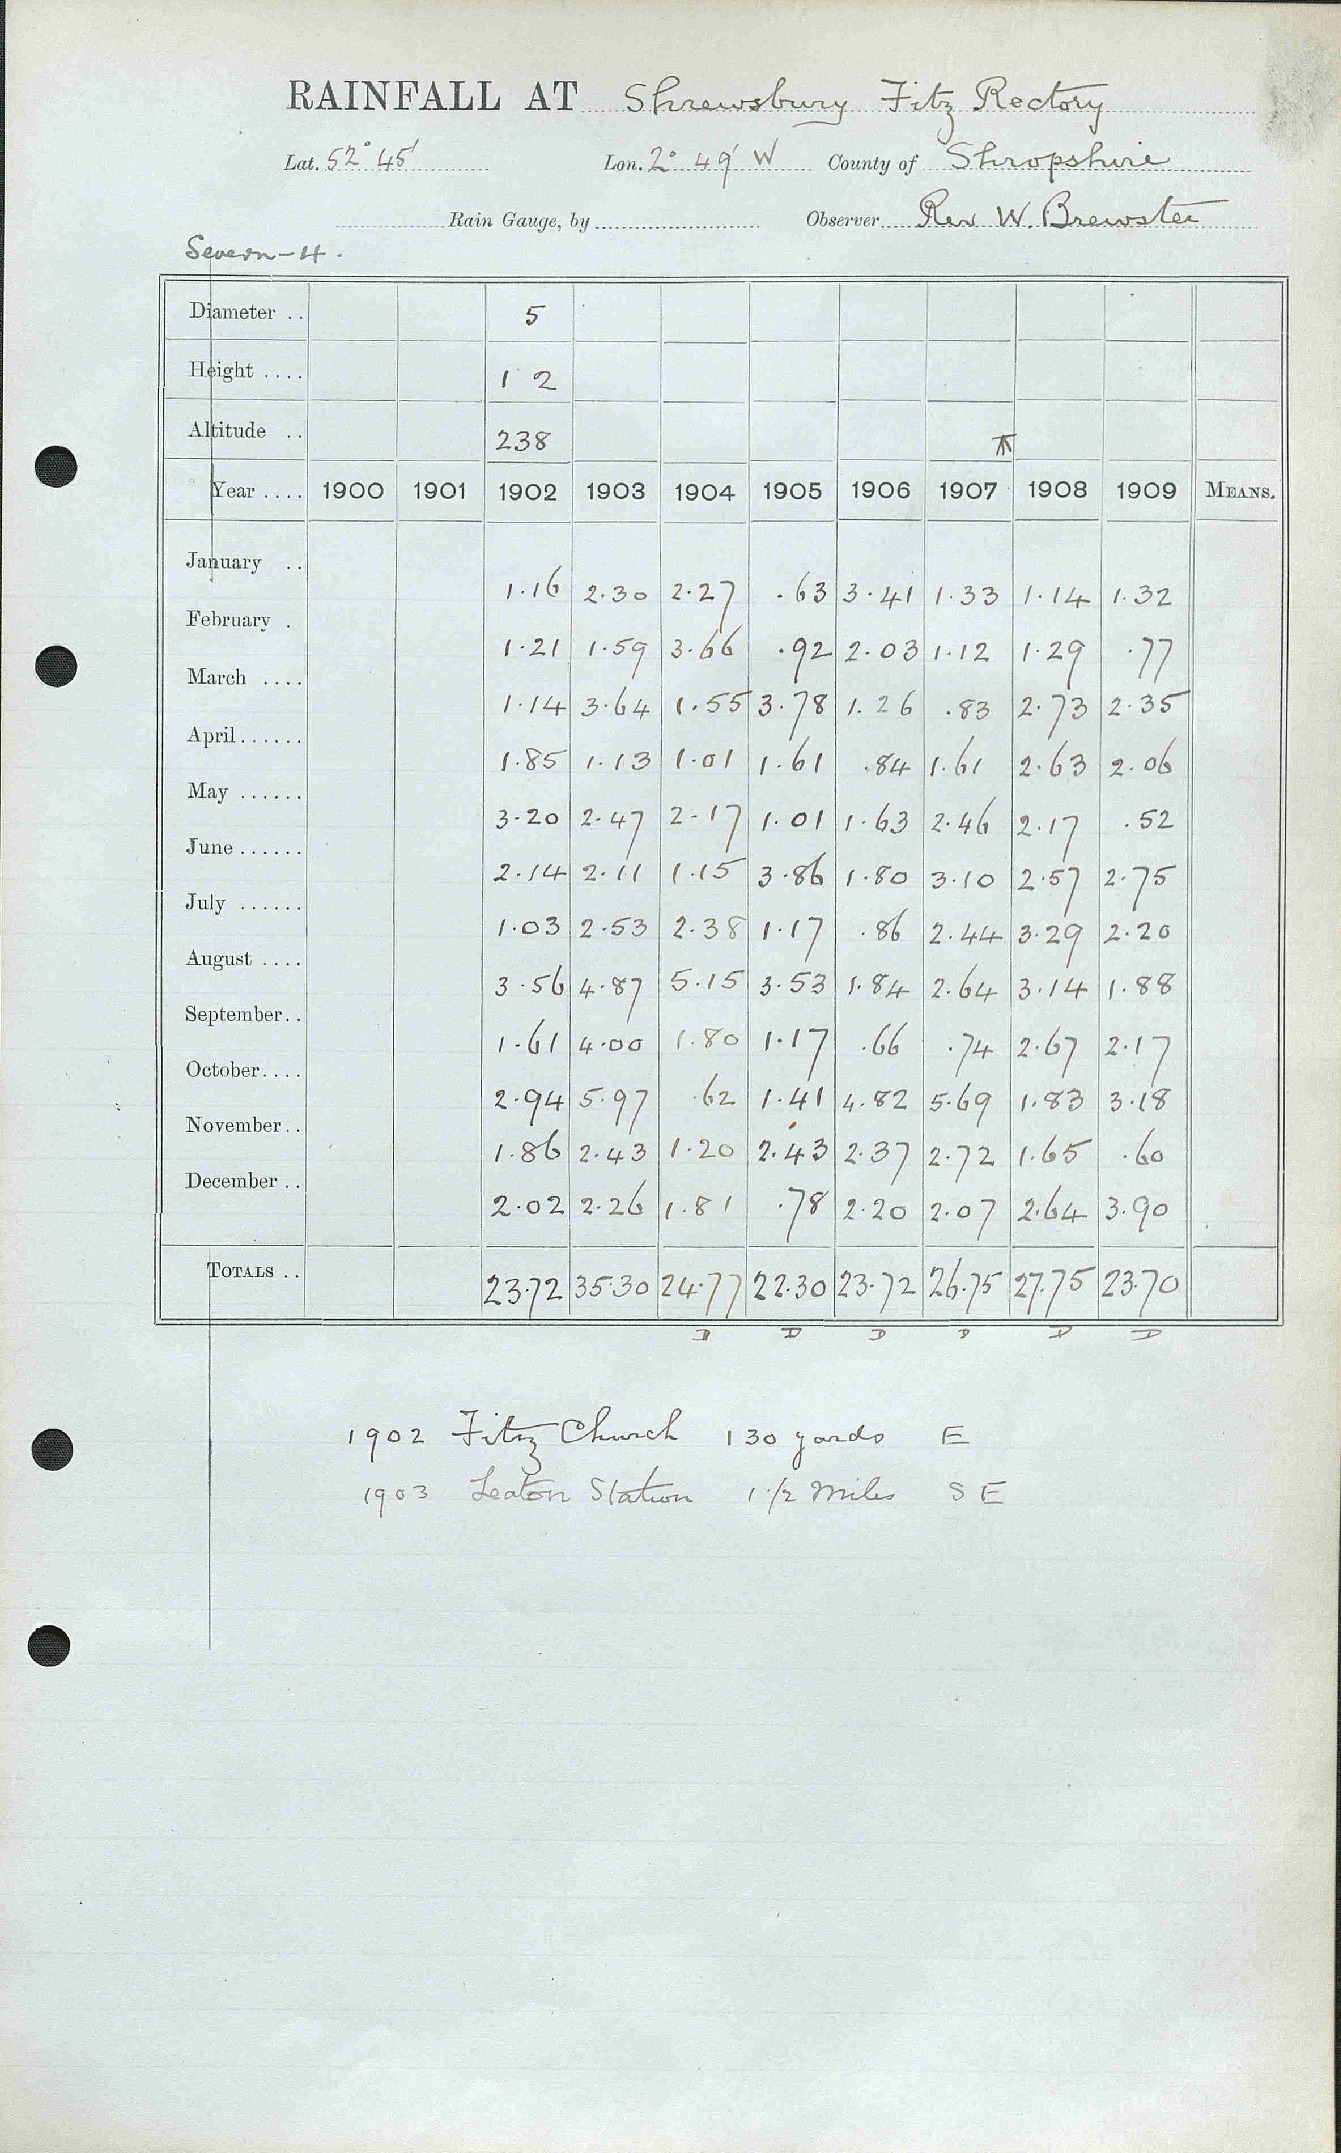 RAINFALL AT Shrewsbury Fitz Rectory
Lat. 52° 45' Lon. 2° 49' W County of Shropshire
Rain Gauge, by Observer Rev W. Brewster
Severn - 4.
Diameter .. 5
Height .... 1 2
Altitude .. 238
Year .... 1900 1901 1902 1903 1904 1905 1906 1907 1908 1909 MEANS.
January .. 1.16 2.30 2.27 .63 3.41 1.33 1.14 1.32
February . 1.21 1.59 3.66 .92 2.03 1.12 1.29 .77
March .... 1.14 3.64 1.55 3.78 1.26 .83 2.73 2.35
April...... 1.85 1.13 1.01 1.61 .84 1.61 2.63 2.06
May ...... 3.20 2.47 2.17 1.01 1.63 2.46 2.17 .52
June...... 2.14 2.11 1.15 3.86 1.80 3.10 2.57 2.75
July ...... 1.03 2.53 2.38 1.17 .86 2.44 3.29 2.20
August .... 3.56 4.87 5.15 3.53 1.84 2.64 3.14 1.88
September.. 1.61 4.00 1.80 1.17 .66 .74 2.67 2.17
October.... 2.94 5.97 .62 1.41 4.82 5.69 1.83 3.18
November.. 1.86 2.43 1.20 2.43 2.37 2.72 1.65 .60
December .. 2.02 2.26 1.81 .78 2.20 2.07 2.64 3.90
TOTALS .. 23.72 35.30 24.77 22.30 23.72 26.75 27.75 23.70
D D D D D D
1902 Fitz Church 130 yards E
1903 Leaton Station 1 1/2 Miles S E